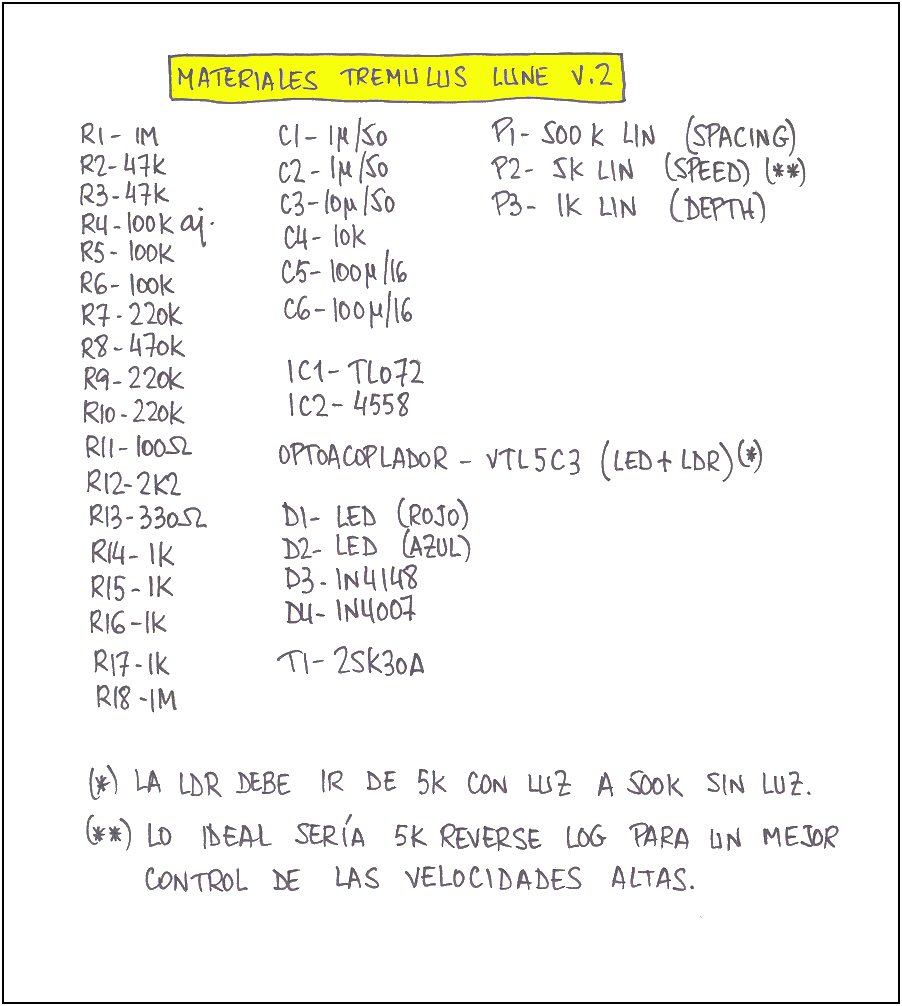 MATERIALES TREMULUS LUNE V.2
R1- 1M
R2- 47K
R3- 47K
R4- 100K aj.
R5- 100K
R6- 100K
R7- 220K
R8- 470K
R9- 220K
R10- 220K
R11- 100Ω
R12- 2K2
R13- 330Ω
R14- 1K
R15- 1K
R16- 1K
R17- 1K
R18- 1M
C1- 1µ/50
C2- 1µ/50
C3- 10µ/50
C4- 10K
C5- 100µ/16
C6- 100µ/16
IC1- TL072
IC2- 4558
OPTOACOPLADOR - VTL5C3 (LED+LDR)(*)
D1- LED (ROJO)
D2- LED (AZUL)
D3- 1N4148
D4- 1N4007
T1- 2SK30A
P1- 500K LIN (SPACING)
P2- 5K LIN (SPEED) (**)
P3- 1K LIN (DEPTH)
(*) LA LDR DEBE IR DE 5K CON LUZ A 500K SIN LUZ.
(**) LO IDEAL SERÍA 5K REVERSE LOG PARA UN MEJOR
CONTROL DE LAS VELOCIDADES ALTAS.